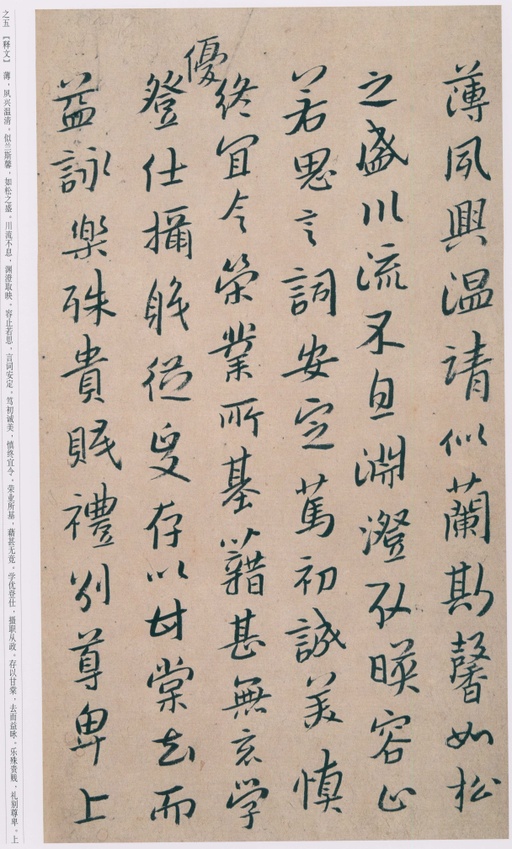 薄夙興温清似蘭斯馨如松
之盛川流不息淵澄取暎容止
若思言詞安定篤初誠美慎
終宜令榮業所基籍甚無竟學
優
登仕攝職從政存以甘棠去而
益詠樂殊貴賤禮別尊卑上
之五 【释文】 薄,夙兴温清,似兰斯馨,如松之盛,川流不息,渊澄取映,容止若思,言词安定,笃初诚美,慎终宜令,荣业所基,藉甚无竟,学优登仕,摄职从政,存以甘棠,去而益咏,乐殊贵贱,礼别尊卑。上